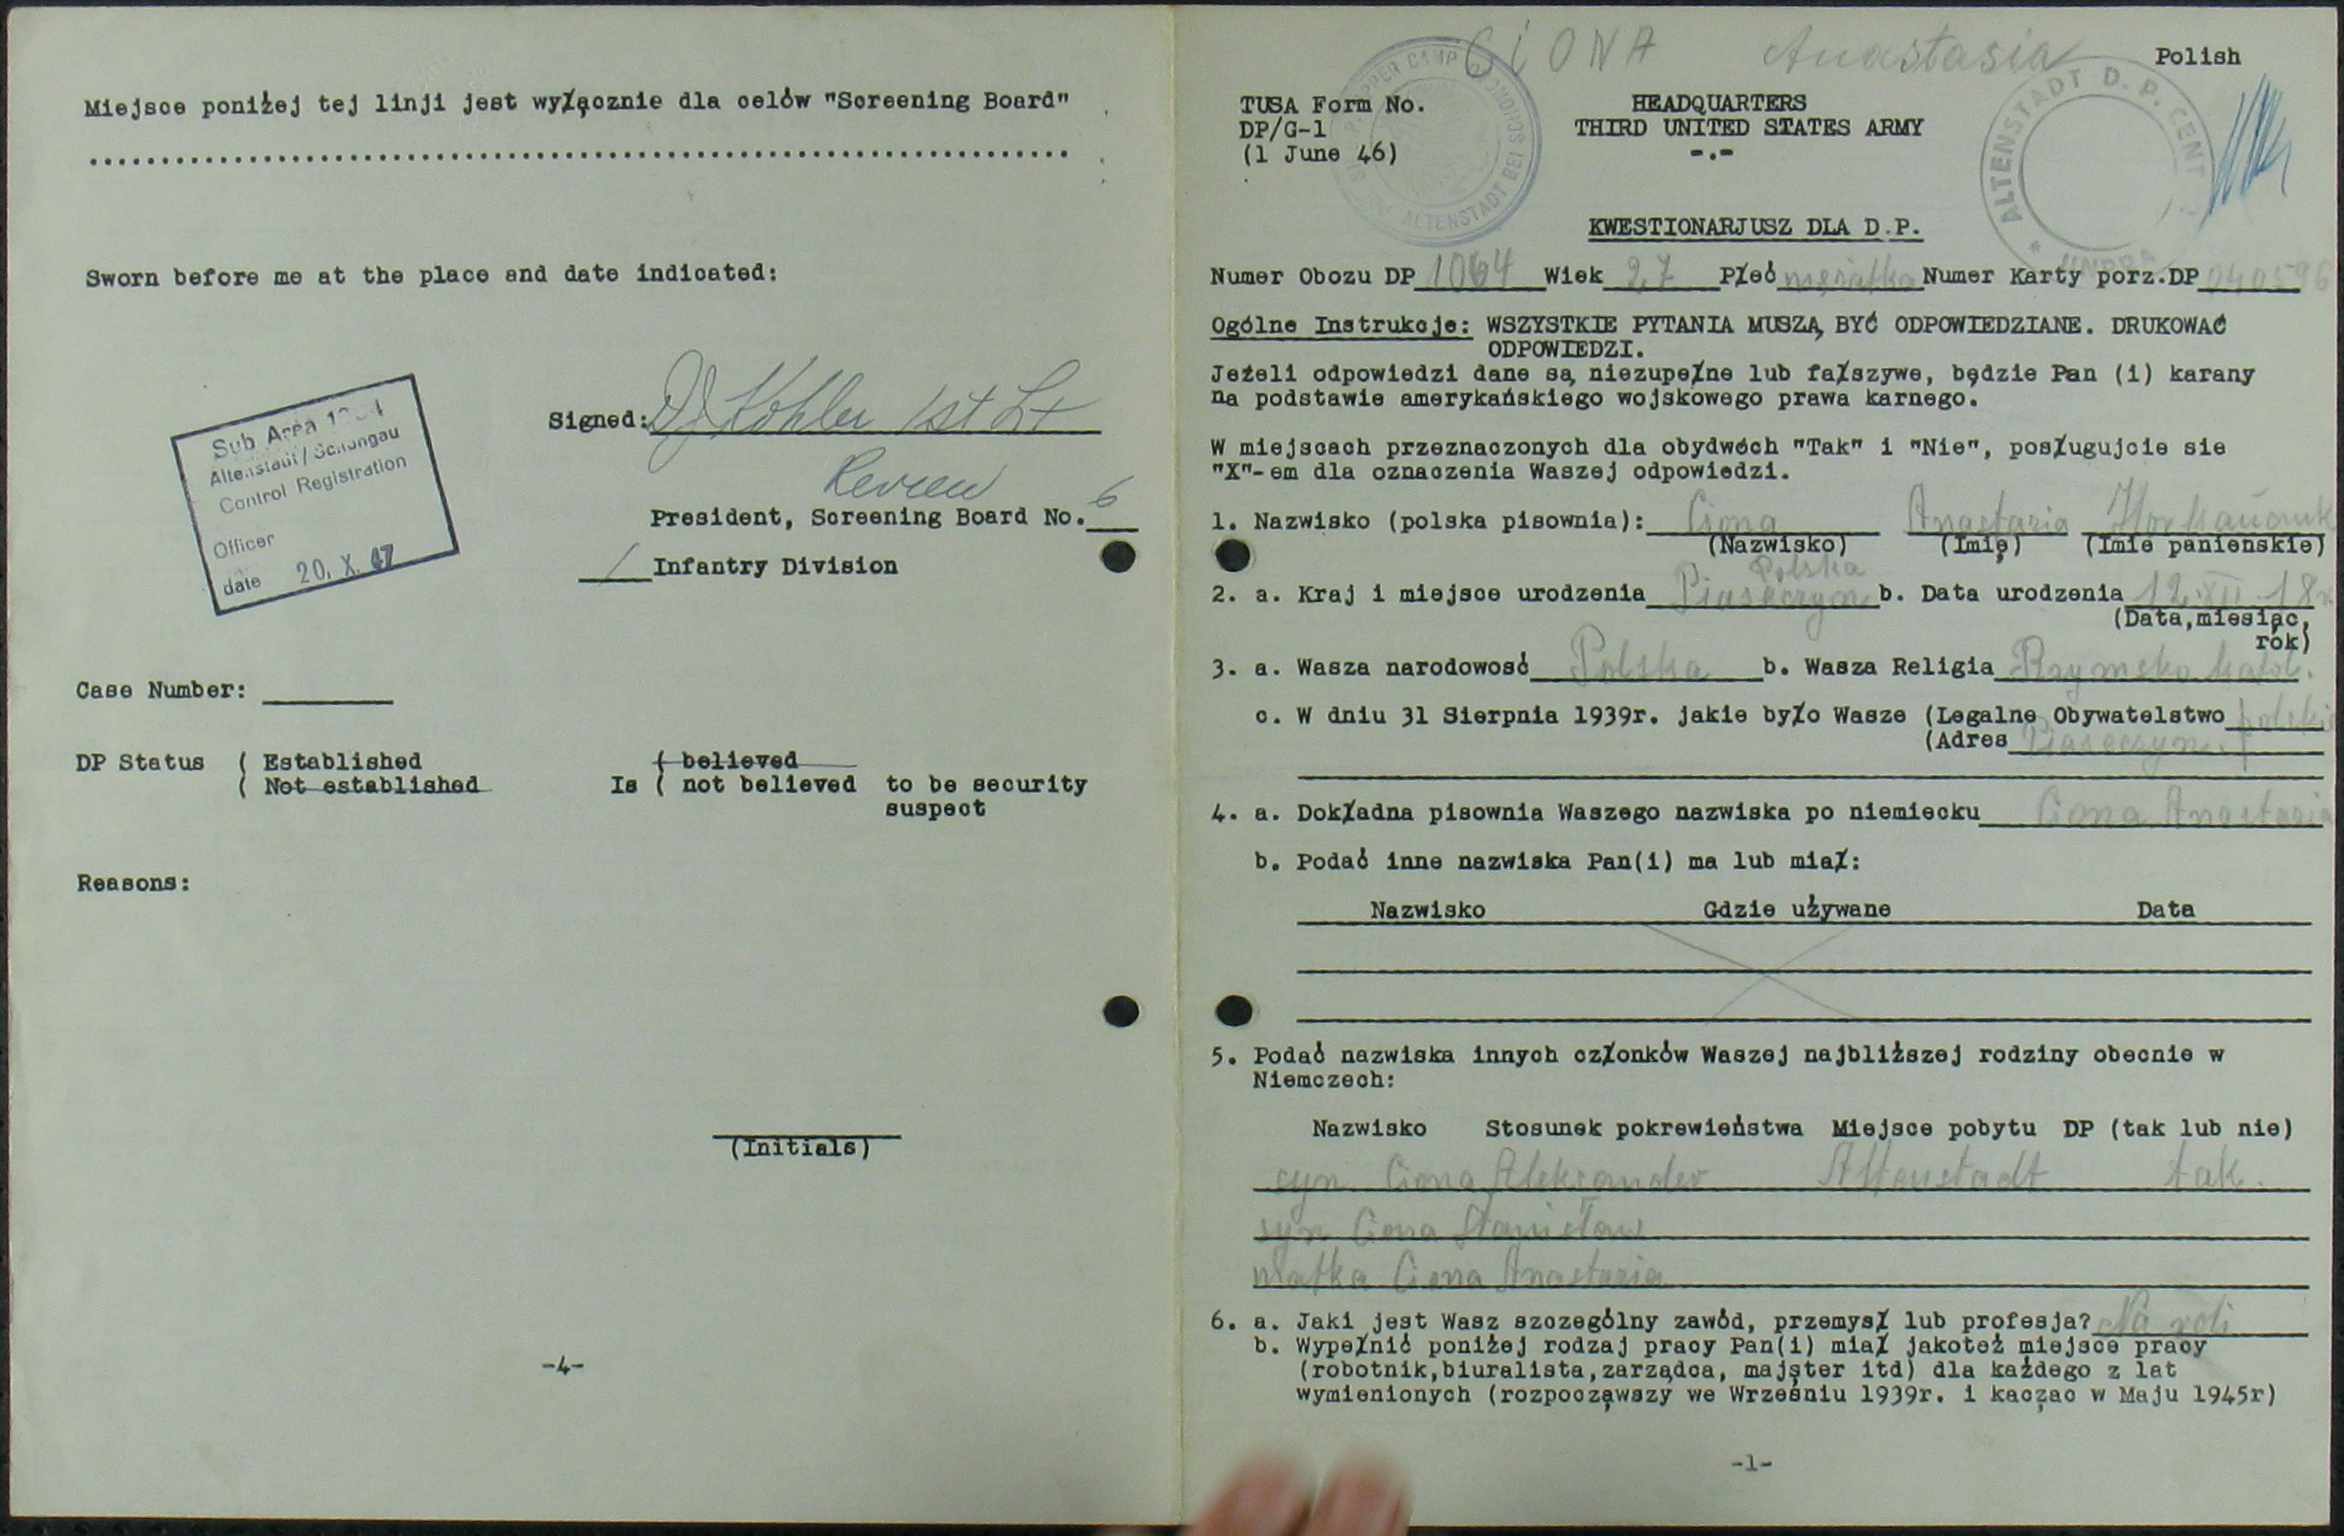 Miejsce poniżej tej linji jest wyłącznie dla celów "Screening Board"
Sworn before me at the place and date indicated:
Sub Area
Altenstadt / Schongau
Control Registration
Officer
date 20. X. 47
Signed: Kohler 1st Lt
Review
President, Screening Board No. 6
1 Infantry Division
Case Number:
DP Status ( Established ( believed
( Not established Is ( not believed to be security
suspect
Reasons:
(Initials)
-4-
CIONA Anastasia Polish
TUSA Form No. HEADQUARTERS
DP/G-1 THIRD UNITED STATES ARMY
(1 June 46) -.-
ALTENSTADT BEI SCHONGAU
ALTENSTADT D. P. CENT
UNRRA
KWESTIONARJUSZ DLA D.P.
Numer Obozu DP 1064 Wiek 27 Płeć mężatka Numer Karty porz.DP 040596
Ogólne Instrukcje: WSZYSTKIE PYTANIA MUSZĄ BYĆ ODPOWIEDZIANE. DRUKOWAĆ
ODPOWIEDZI.
Jeżeli odpowiedzi dane są niezupełne lub fałszywe, będzie Pan (i) karany
na podstawie amerykańskiego wojskowego prawa karnego.
W miejscach przeznaczonych dla obydwóch "Tak" i "Nie", posługujcie sie
"X"-em dla oznaczenia Waszej odpowiedzi.
1. Nazwisko (polska pisownia): Ciona Anastazja
(Nazwisko) (Imię) (Imie panienskie)
Polska
2. a. Kraj i miejsce urodzenia Piaseczyn b. Data urodzenia 12.XII.18r
(Data,miesiąc,
rók)
3. a. Wasza narodowość Polska b. Wasza Religia Rzymsko katol.
c. W dniu 31 Sierpnia 1939r. jakie było Wasze (Legalne Obywatelstwo polskie
(Adres Piaseczyn
4. a. Dokładna pisownia Waszego nazwiska po niemiecku Ciona Anastazia
b. Podać inne nazwiska Pan(i) ma lub miał:
Nazwisko Gdzie używane Data
5. Podać nazwiska innych członków Waszej najbliższej rodziny obecnie w
Niemczech:
Nazwisko Stosunek pokrewieństwa Miejsce pobytu DP (tak lub nie)
syn Ciona Aleksander Altenstadt tak.
syn Ciona Stanisław
matka Ciona Anastazia
6. a. Jaki jest Wasz szczególny zawód, przemysł lub profesja? Na roli
b. Wypełnić poniżej rodzaj pracy Pan(i) miał jakoteż miejsce pracy
(robotnik,biuralista,zarządca, majster itd) dla każdego z lat
wymienionych (rozpocząwszy we Wrześniu 1939r. i kacząc w Maju 1945r)
-1-